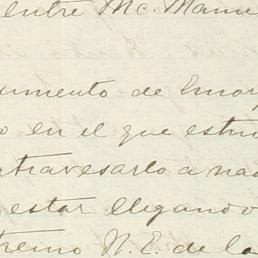 entre Mc. Manu
umento de Emor
o en el que estru
atravesarlo a nad
estar llegando
tremo N. E. de la